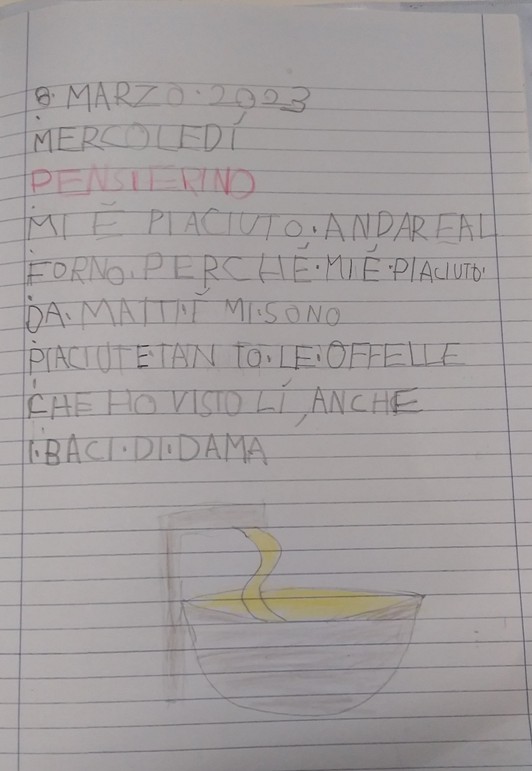 8·MARZO·2023
MERCOLEDÍ
PENSIERINO
MI É PIACIUTO·ANDAREAL
FORNO·PERCHÉ·MI É·PIACIUTO·
DA·MATTI·Ì MI·SONO
PIACIUTE·TAN TO·LE·OFFELLE
CHE HO VISTO LÍ, ANCHE
I·BACI·DI·DAMA